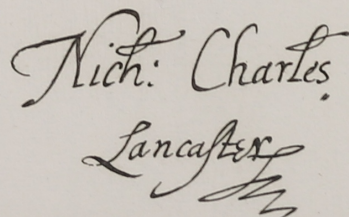 Nich: Charles.
Lancaster